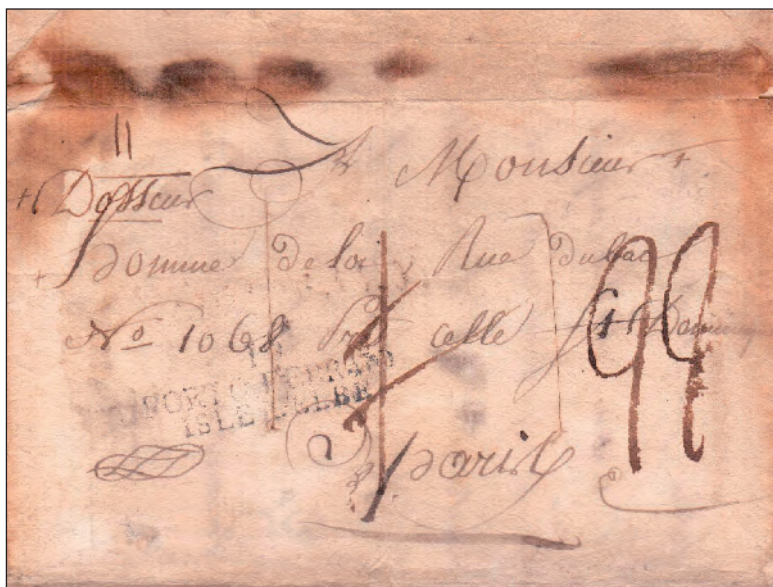 11
Monsieur
homme de loi Rue dubac
No 1068 Pres celle St Dominique
PORTO FERRAIO
ISLE D'ELBE
Paris
99